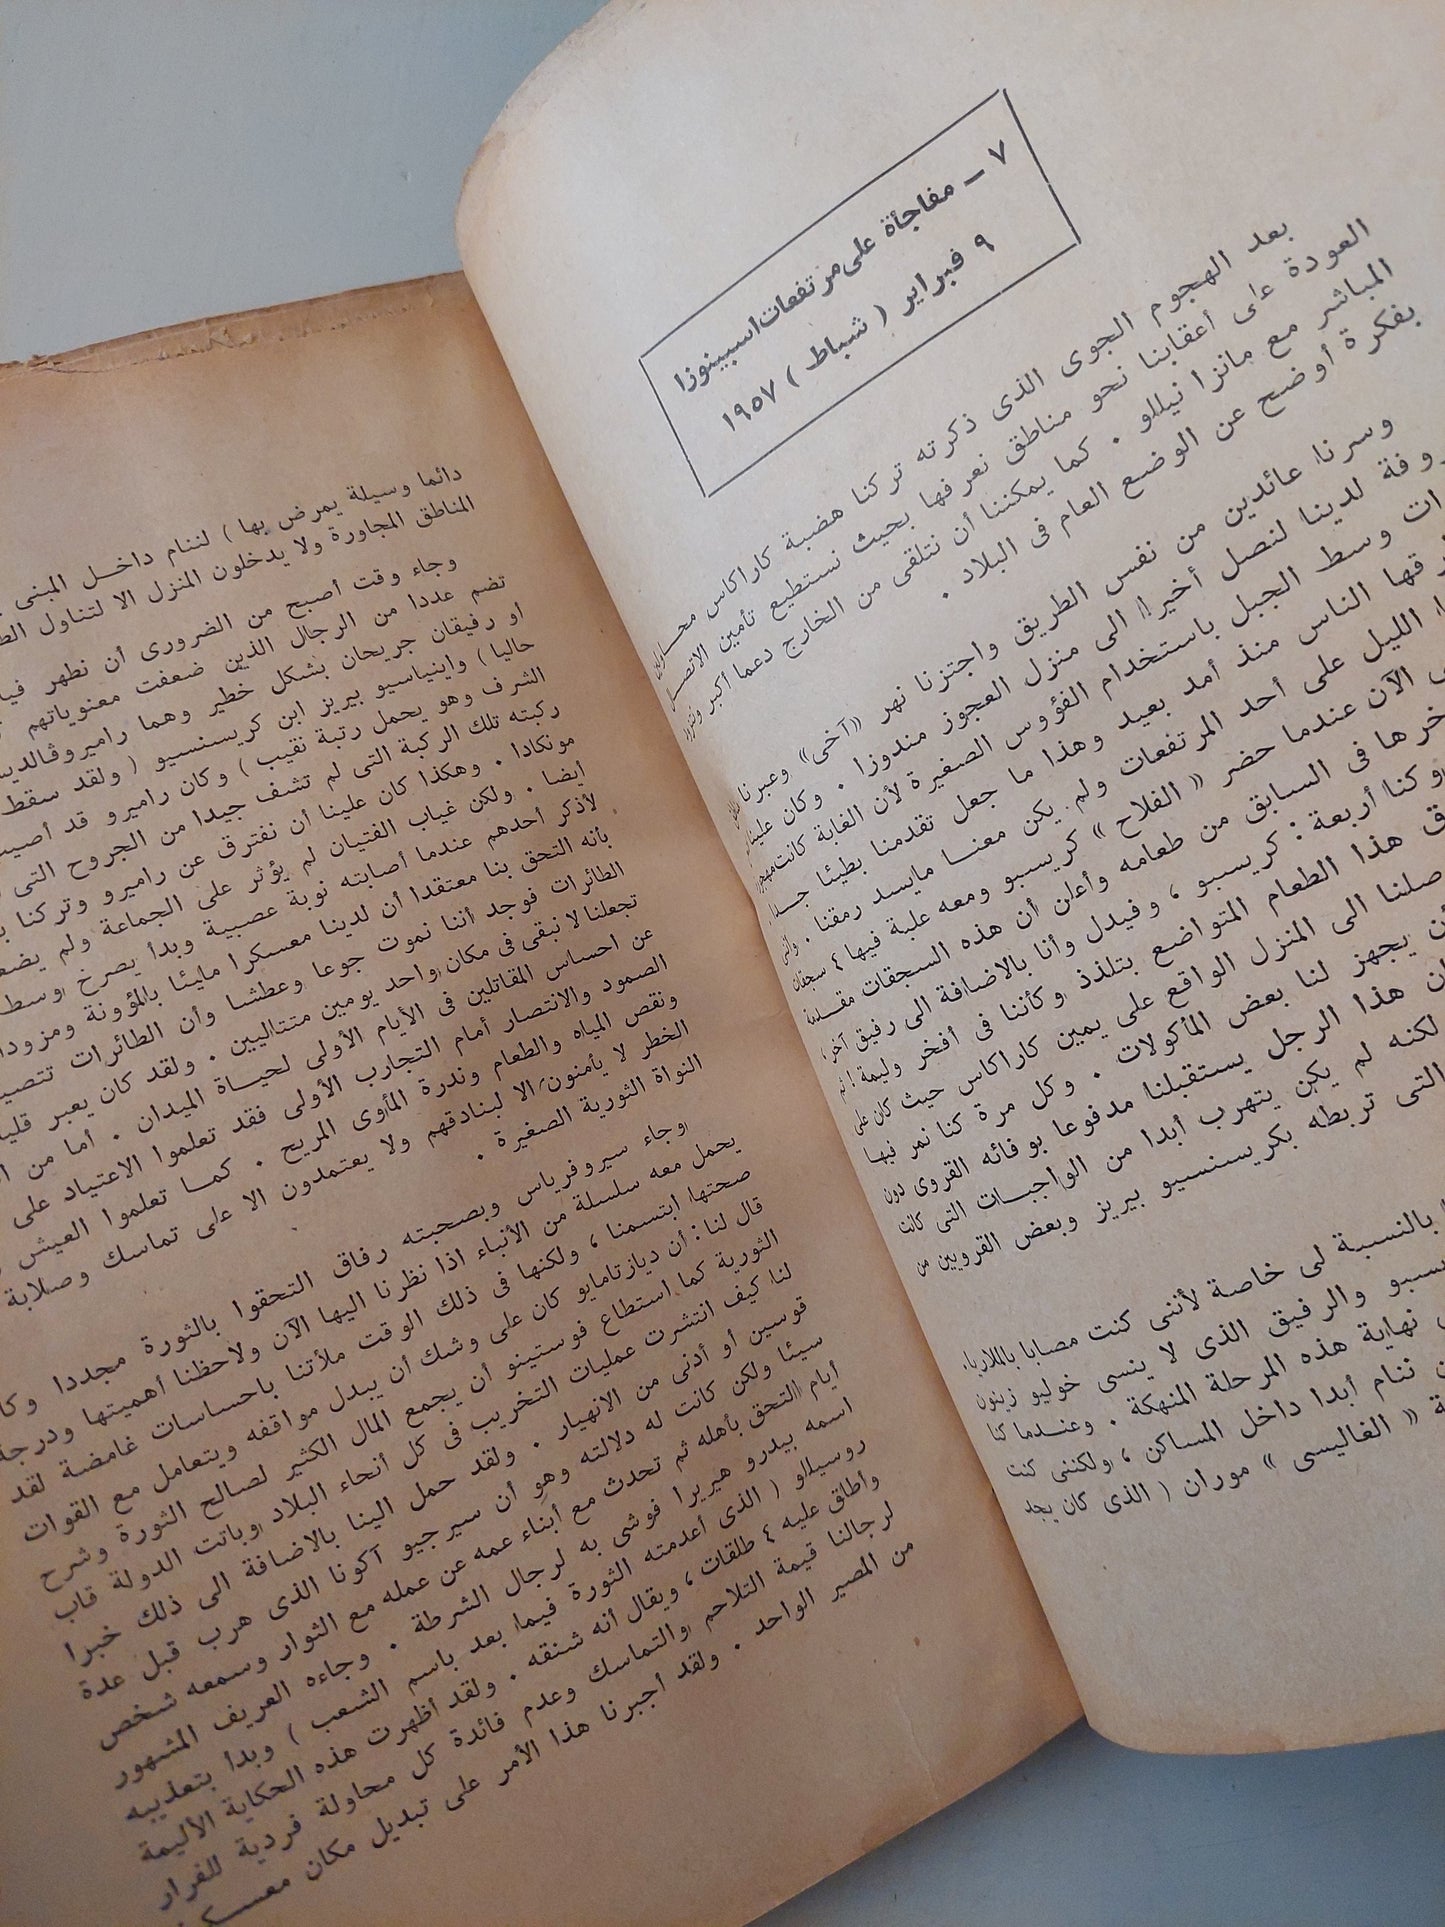 ٧ - مفاجأة على مرتفعات اسبينوزا
٩ فبراير ( شباط ) ١٩٥٧
بعد الهجوم الجوى الذى ذكرته تركنا هضبة كاراكاس محاولين
العودة على أعقابنا نحو مناطق نعرفها بحيث نستطيع تأمين الاتصال
المباشر مع مانزا نيللو . كما يمكننا أن نتلقى من الخارج دعما أكبر ونتزود
بفكرة أوضح عن الوضع العام فى البلاد .
وسرنا عائدين من نفس الطريق واجتزنا نهر «آخى» وعبرنا
روفة لدينا لنصل أخيرا الى منزل العجوز مندوزا . وكان علينا
ات وسط الجبل باستخدام الفؤوس الصغيرة لأن الغابة كانت مهجورة
رقها الناس منذ أمد بعيد وهذا ما جعل تقدمنا بطيئا جدا
ا الليل على أحد المرتفعات ولم يكن معنا مايسد رمقنا .
ى الآن عندما حضر « الفلاح » كريسبو ومعه علبة فيها ٤ سجقات
خرها فى السابق من طعامه وأعلن أن هذه السجقات مقدمة
وكنا أربعة : كريسبو ، وفيدل وأنا بالاضافة الى رفيق آخر ،
ق هذا الطعام المتواضع بتلذذ وكأننا فى أفخر وليمة ! ثم
صلنا الى المنزل الواقع على يمين كاراكاس حيث كان على
أن يجهز لنا بعض المأكولات . وكل مرة كنا نمر فيها
ان هذا الرجل يستقبلنا مدفوعا بوفائه القروى دون
لكنه لم يكن يتهرب أبدا من الواجبات التى كانت
التى تربطه بكريسنسيو بيريز وبعض القرويين من
بالنسبة لى خاصة لأننى كنت مصابا بالملاريا .
سبو والرفيق الذى لا ينسى خوليو زينون
نهاية هذه المرحلة المنهكة . وعندما كنا
ن ننام أبدا داخل المساكن ، ولكننى كنت
ة « الغاليسى » موران ( الذى كان يجد
دائما وسيلة يمرض بها ) لننام داخل المبنى
المناطق المجاورة ولا يدخلون المنزل الا لتناول
وجاء وقت أصبح من الضرورى أن نطهر
تضم عددا من الرجال الذين ضعفت معنوياتهم
او رفيقان جريحان بشكل خطير وهما راميروفالديس
حاليا ) واينياسيو بيريز ابن كريسنسيو ( ولقد سقط
الشرف وهو يحمل رتبة نقيب ) وكان راميرو قد أصيب
ركبته تلك الركبة التى لم تشف جيدا من الجروح التى
مونكادا . وهكذا كان علينا أن نفترق عن راميرو وتركنا
أيضا . ولكن غياب الفتيان لم يؤثر على الجماعة ولم
لأذكر أحدهم عندما أصابته نوبة عصبية وبدأ يصرخ وسط
بأنه التحق بنا معتقدا أن لدينا معسكرا مليئا بالمؤونة ومزودا
الطائرات فوجد أننا نموت جوعا وعطشا وأن الطائرات
تجعلنا لا نبقى فى مكان واحد يومين متتاليين . ولقد كان يعبر
عن احساس المقاتلين فى الأيام الأولى لحياة الميدان . أما من
الصمود والانتصار أمام التجارب الأولى فقد تعلموا الاعتياد على
ونقص المياه والطعام وندرة المأوى المريح . كما تعلموا العيش
الخطر لا يأمنون الا لبنادقهم ولا يعتمدون الا على تماسك وصلابة
النواة الثورية الصغيرة .
وجاء سيروفرياس وبصحبته رفاق التحقوا بالثورة مجددا
يحمل معه سلسلة من الأنباء اذا نظرنا اليها الآن ولاحظنا أهميتها ودرجة
صحتها ابتسمنا ، ولكنها فى ذلك الوقت ملأتنا باحساسات غامضة لقد
قال لنا : أن ديازتامايو كان على وشك أن يبدل مواقفه ويتعامل مع القوات
الثورية كما استطاع فوستينو أن يجمع المال الكثير لصالح الثورة وشرح
لنا كيف انتشرت عمليات التخريب فى كل أنحاء البلاد وباتت الدولة قاب
قوسين أو أدنى من الانهيار . ولقد حمل الينا بالاضافة الى ذلك خبرا
سيئا ولكن كانت له دلالته وهو أن سيرجيو آكونا الذى هرب قبل عدة
أيام التحق بأهله ثم تحدث مع أبناء عمه عن عمله مع الثوار وسمعه شخص
اسمه بيدرو هيريرا فوشى به لرجال الشرطة . وجاءه العريف المشهور
روسيللو ( الذى أعدمته الثورة فيما بعد باسم الشعب ) وبدا بتعذيبه
وأطلق عليه ٤ طلقات ، ويقال أنه شنقه . ولقد أظهرت هذه الحكاية الأليمة
لرجالنا قيمة التلاحم والتماسك وعدم فائدة كل محاولة فردية للفرار
من المصير الواحد . ولقد أجبرنا هذا الأمر على تبديل مكان